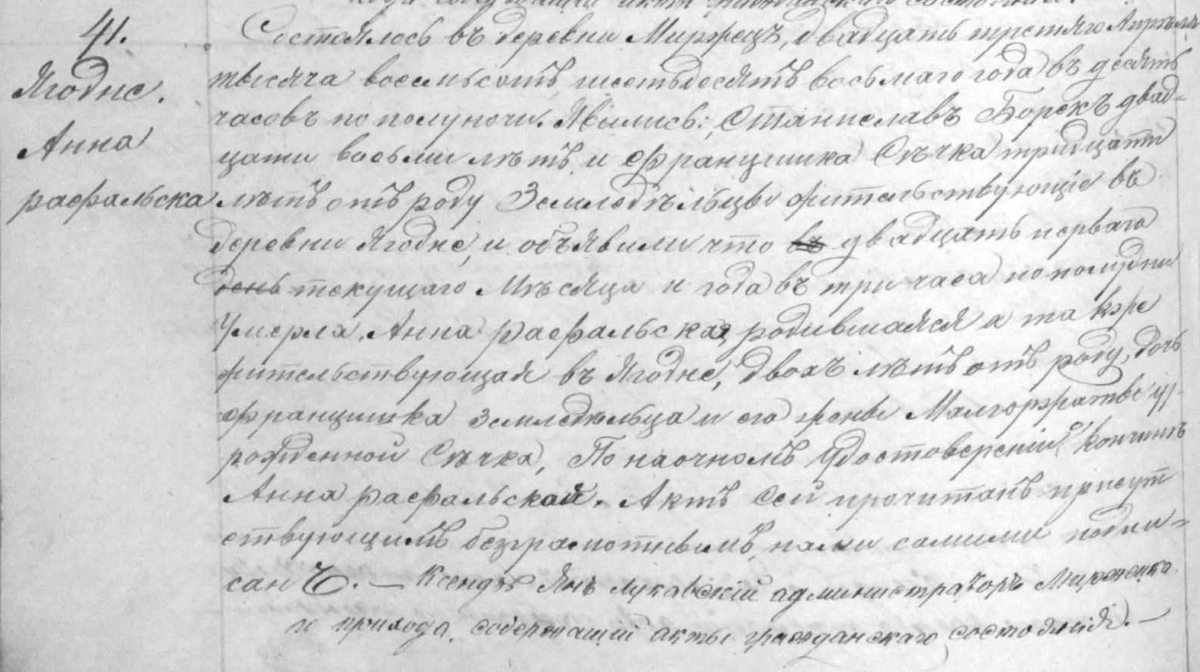 акты гражданскаго состоянія.
41.
Ягодне.
Анна
рафальска
Состоялось въ деревни Миржецъ, двадцать третяго Апрѣля
тысяча восемьсотъ шестьдесятъ восьмаго года въ десять
часовъ по полуночи. Явились: Станиславъ Борекъ двад-
цати восьми лѣтъ и Францишка Сѣчка тридцати
лѣтъ отъ роду Земледѣльцы жительствующіе въ
деревни Ягодне, и объявили что въ двадцать перваго
день текущаго Мѣсяца и года въ три часа по полудни
Умерла, Анна рафальская, родившаяся а та кже
жительствующая въ Ягодне, двохъ лѣтъ отъ роду, дочь
францишка земледѣльца и его жены Малгоржаты у-
рожденной Сѣчка, По наочномъ Удостоверении о кончинѣ
Анна рафальской. Актъ Сей прочитанъ присут
ствующимъ безграмотнымъ, нами самими подпи-
санъ. — Ксендзъ Янъ Лукавскій администраторъ Миржецка
го прихода, содержащій акты гражданскаго состоянія. —